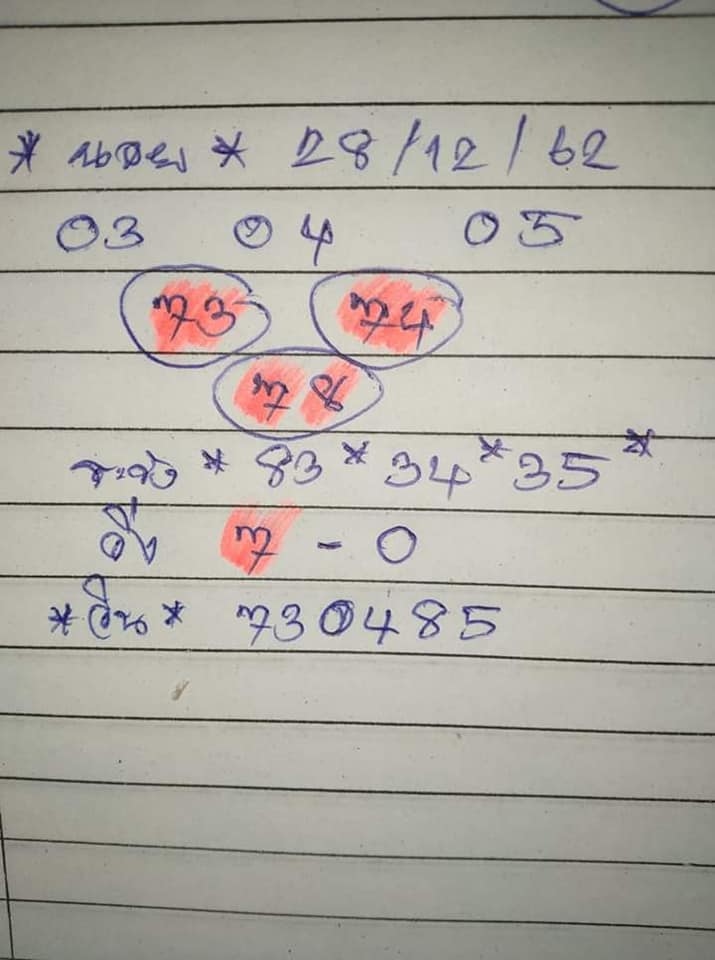 * นอย * 28/12/62
03 04 05
73 74
78
ระวัง * 83 * 34 * 35 *
อิ่ง 7 - 0
*จีน* 730485